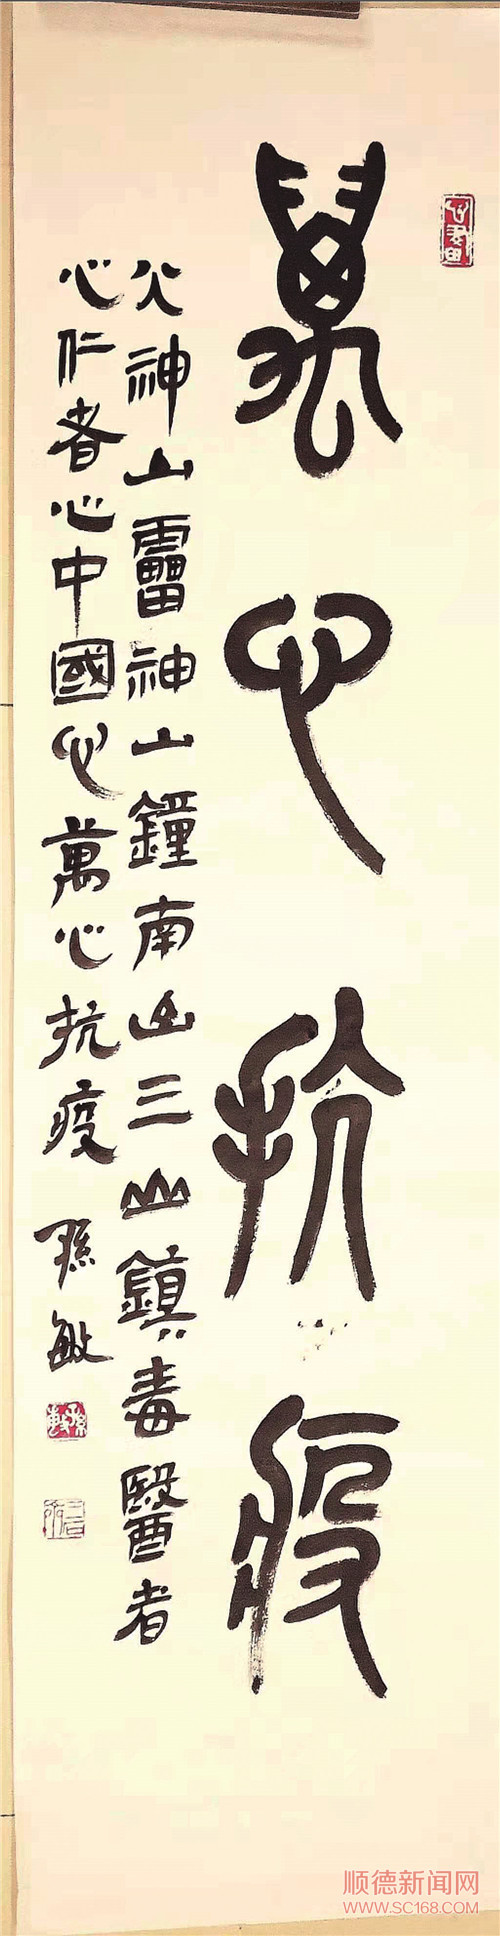 萬心抗疫
火神山雷神山鐘南山三山鎮毒醫者
心仁者心中國心萬心抗疫
孫敏
顺德新闻网
www.sc168.com